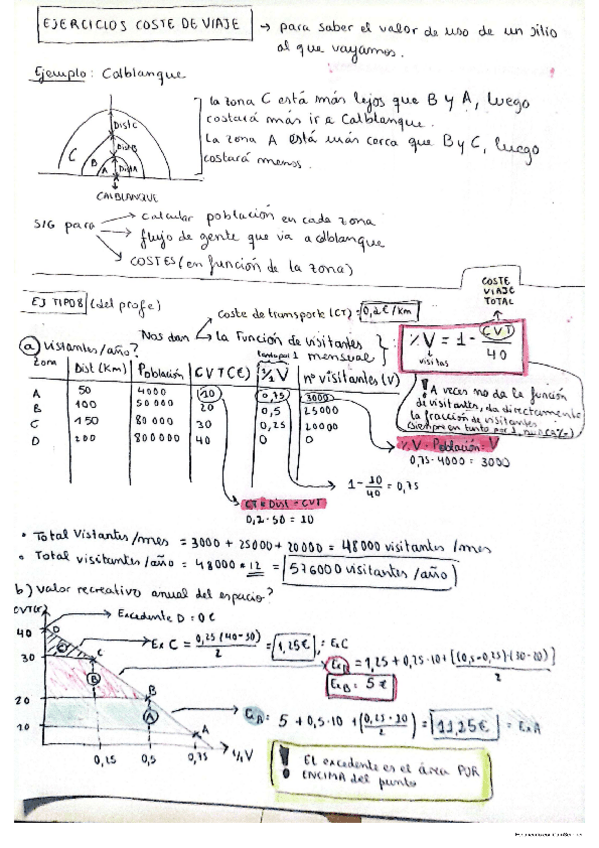 EJERCICIOS COSTE DE VIAJE → para saber el valor de uso de un sitio
al que vayamos.
Ejemplo: Calblanque
la zona C está más lejos que B y A, luego
costará más ir a Calblanque.
La zona A está más cerca que B y C, luego
costará menos.
Dist C
Dist B
Dist A
C B A
CALBLANQUE
SIG para → calcular población en cada zona
→ flujo de gente que va a calblanque
→ COSTES (en función de la zona)
COSTE
VIAJE
TOTAL
EJ TIPO 8 (del profe)
Nos dan → coste de transporte (CT) = 0,2 €/km
→ la Función de visitantes
mensual
%V = 1 - CVT / 40
visitas
a) Visitantes/año?
Tanto por 1
Zona | Dist (Km) | Población | CVT (€) | %V | nº visitantes (V)
A 50 4000 10 0,75 3000
B 100 50 000 20 0,5 25000
C 150 80 000 30 0,25 20000
D 200 800000 40 0 0
! A veces no da la función
de visitantes, da directamente
la fracción de visitantes
%V · Población = V
0,75 · 4000 = 3000
1 - 10/40 = 0,75
CT · Dist = CVT
0,2 · 50 = 10
• Total Vistantes/mes = 3000 + 25000 + 20000 = 48000 visitantes /mes
• Total visitantes/año = 48000 * 12 = 576000 visitantes /año
b) Valor recreativo anual del espacio?
CVT(€)
→ Excedente D = 0 €
40 D
→ Ex C = 0,25 (40-30) / 2 = 1,25 € = ExC
30 C
ExB = 1,25 + 0,25 · 10 + [(0,5-0,25)·(30-20)] / 2
ExB = 5 €
20 B
→ CA = 5 + 0,5 · 10 + (0,25 · 10 / 2) = 11,25 € = ExA
10 A
0,25 0,5 0,75 %V
! EL excedente es el área POR
ENCIMA del punto